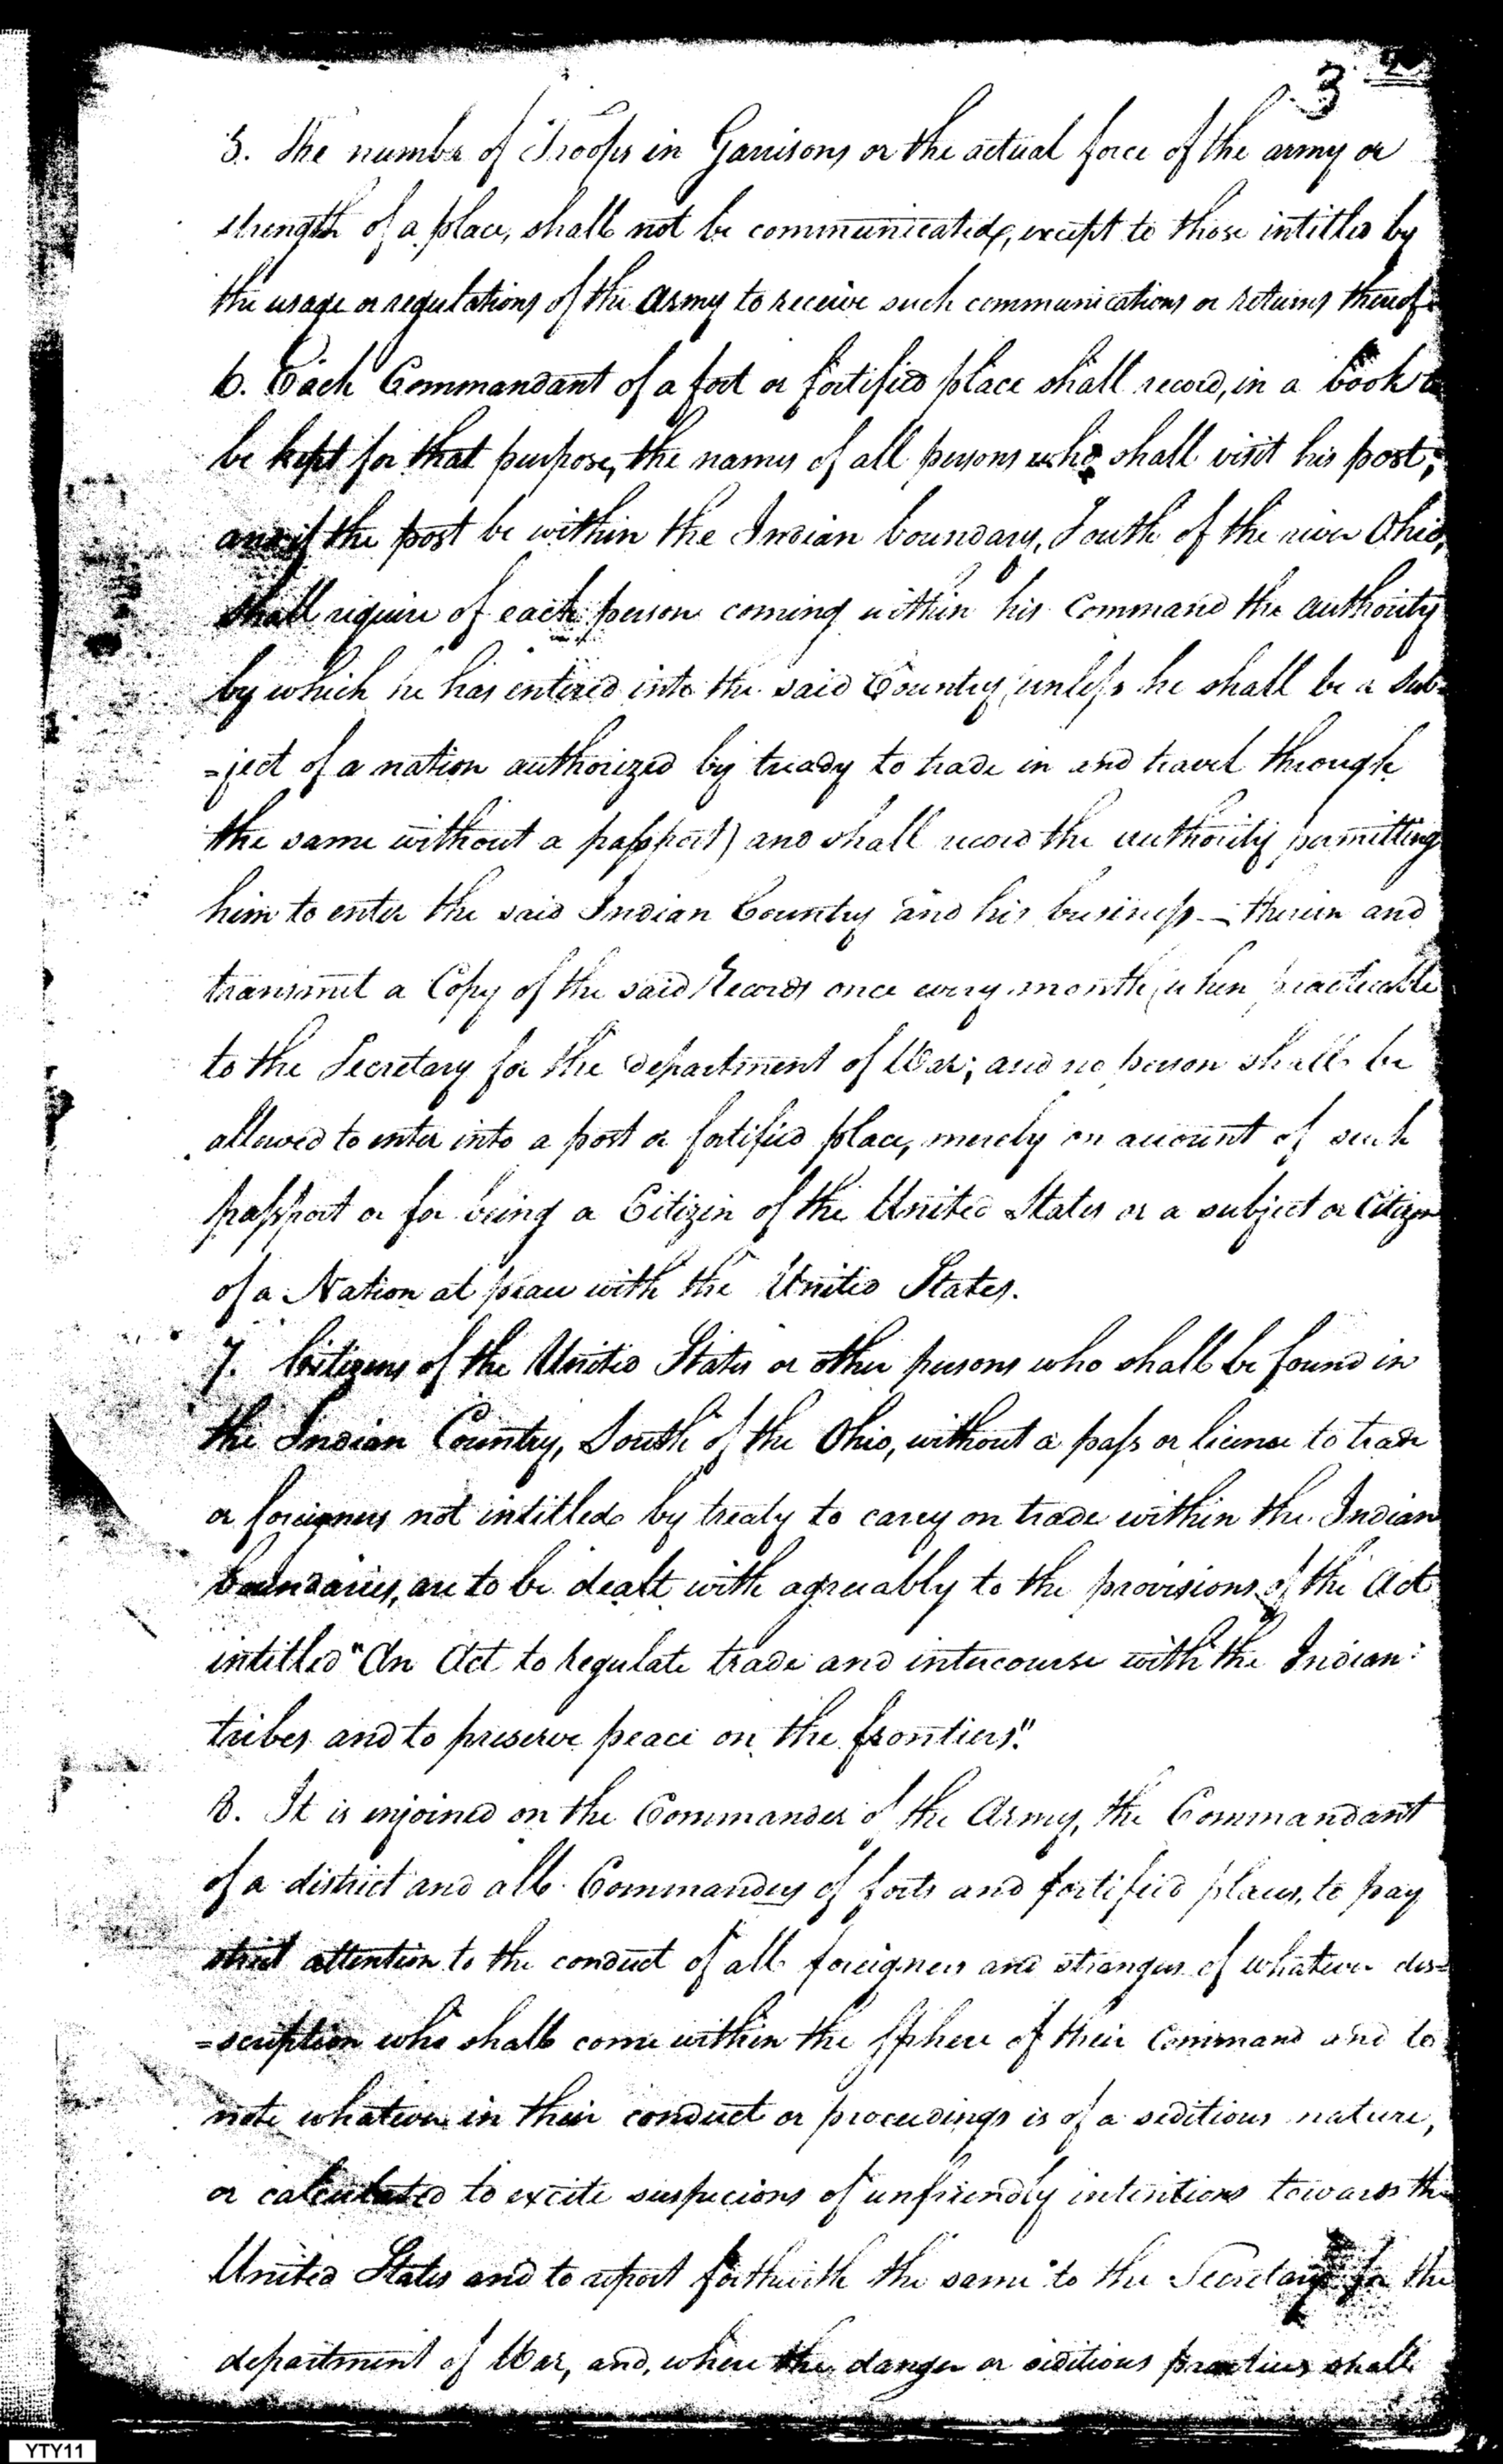 3
5. The number of Troops in Garrisons or the actual force of the army or
strength of a place, shall not be communicated, except to those intitled by
the usage or regulations of the Army to receive such communications or returns thereof.
6. Each Commandant of a fort or fortified place shall record, in a book to
be kept for that purpose, the names of all persons who shall visit his post;
and if the post be within the Indian boundary, South of the river Ohio,
shall require of each person coming within his Command the authority
by which he has entered into the said Country (unless he shall be a sub-
=ject of a nation authorized by treaty to trade in and travel through
the same without a passport) and shall record the authority permitting
him to enter the said Indian Country and his business — therein and
transmit a Copy of the said Records once every month (when practicable
to the Secretary for the department of War; and no person shall be
allowed to enter into a post or fortified place, merely on account of such
passport or for being a Citizen of the United States or a subject or Citizen
of a Nation at peace with the United States.
7. Citizens of the United States or other persons who shall be found in
the Indian Country, South of the Ohio, without a pass or license to trade
or foreigners not intitled by treaty to carry on trade within the Indian
boundaries, are to be dealt with agreeably to the provisions of the Act
intitled "An Act to regulate trade and intercourse with the Indian
tribes and to preserve peace on the frontiers".
8. It is enjoined on the Commander of the Army, the Commandant
of a district and all Commanders of forts and fortified places, to pay
strict attention to the conduct of all foreigners and strangers of whatever des=
=scription who shall come within the Sphere of their Command and to
note whatever in their conduct or proceedings is of a seditious nature,
or calculated to excite suspicions of unfriendly intentions towards the
United States and to report forthwith the same to the Secretary for the
department of War, and, where the danger or seditious practices shall
YTY11